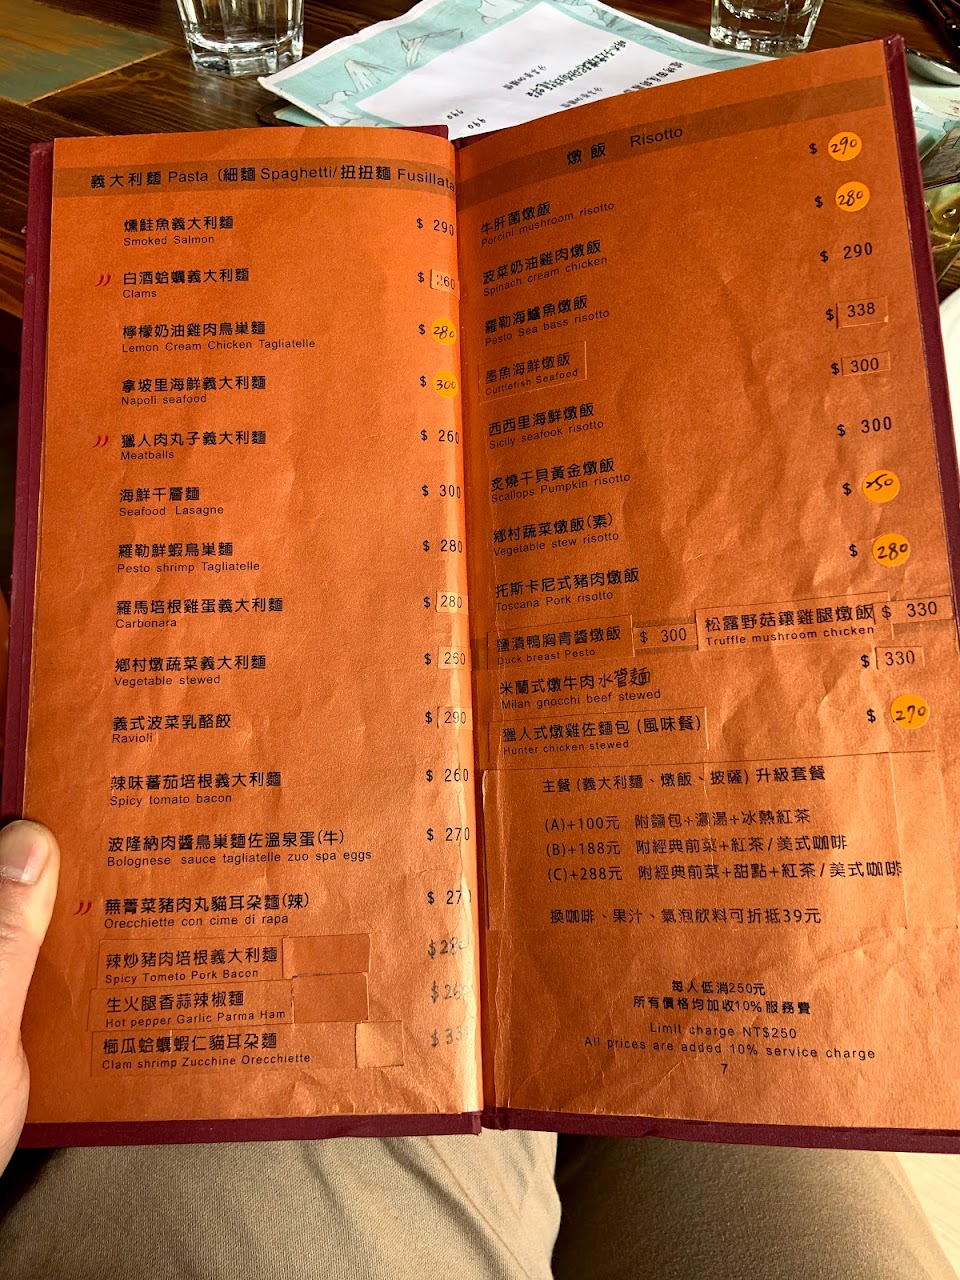 義大利麵 Pasta (細麵 Spaghetti/扭扭麵 Fusillata
燻鮭魚義大利麵 $ 290
Smoked Salmon
白酒蛤蠣義大利麵 $ 260
Clams
檸檬奶油雞肉鳥巢麵 $ 280
Lemon Cream Chicken Tagliatelle
拿坡里海鮮義大利麵 $ 300
Napoli seafood
獵人肉丸子義大利麵 $ 260
Meatballs
海鮮千層麵 $ 300
Seafood Lasagne
羅勒鮮蝦鳥巢麵 $ 280
Pesto shrimp Tagliatelle
羅馬培根雞蛋義大利麵 $ 280
Carbonara
鄉村燉蔬菜義大利麵 $ 260
Vegetable stewed
義式波菜乳酪餃 $ 290
Ravioli
辣味蕃茄培根義大利麵 $ 260
Spicy tomato bacon
波隆納肉醬鳥巢麵佐溫泉蛋(牛) $ 270
Bolognese sauce tagliatelle zuo spa eggs
蕪菁菜豬肉丸貓耳朵麵(辣) $ 27
Orecchiette con cime di rapa
辣炒豬肉培根義大利麵 $28
Spicy Tometo Pork Bacon
生火腿香蒜辣椒麵 $26
Hot pepper Garlic Parma Ham
櫛瓜蛤蠣蝦仁貓耳朵麵 $33
Clam shrimp Zucchine Orecchiette
燉飯 Risotto
牛肝菌燉飯 $ 290
Porcini mushroom risotto
波菜奶油雞肉燉飯 $ 280
Spinach cream chicken
羅勒海鱸魚燉飯 $ 290
Pesto Sea bass risotto
墨魚海鮮燉飯 $ 338
Cuttlefish Seafood
西西里海鮮燉飯 $ 300
Sicily seafook risotto
炙燒干貝黃金燉飯 $ 300
Scallops Pumpkin risotto
鄉村蔬菜燉飯(素) $ 250
Vegetable stew risotto
托斯卡尼式豬肉燉飯 $ 280
Toscana Pork risotto
鹽漬鴨胸青醬燉飯 $ 300 松露野菇鑲雞腿燉飯 $ 330
Duck breast Pesto Truffle mushroom chicken
米蘭式燉牛肉水管麵 $ 330
Milan gnocchi beef stewed
獵人式燉雞佐麵包 (風味餐) $ 270
Hunter chicken stewed
主餐 (義大利麵、燉飯、披薩) 升級套餐
(A)+100元 附麵包+濃湯+冰熱紅茶
(B)+188元 附經典前菜+紅茶/美式咖啡
(C)+288元 附經典前菜+甜點+紅茶/美式咖啡
換咖啡、果汁、氣泡飲料可折抵39元
每人低消250元
所有價格均加收10%服務費
Limit charge NT$250
All prices are added 10% service charge
7